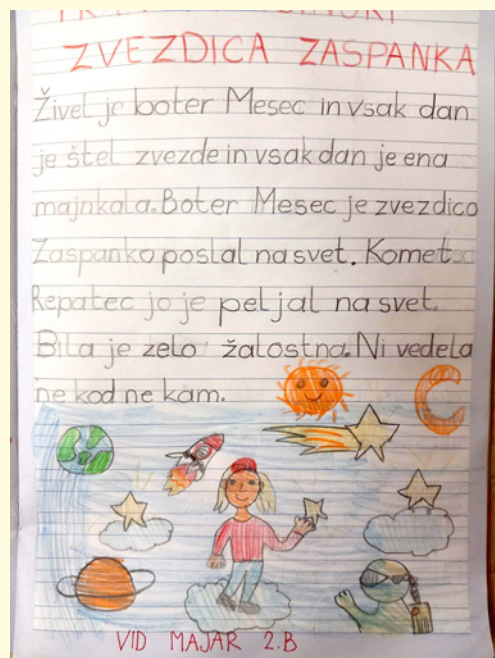 ZVEZDICA ZASPANKA
Živel je boter Mesec in vsak dan
je štel zvezde in vsak dan je ena
majnkala. Boter Mesec je zvezdico
Zaspanko poslal na svet. Komet
Repatec jo je peljal na svet.
Bila je zelo žalostna. Ni vedela
ne kod ne kam.
VID MAJAR 2.B